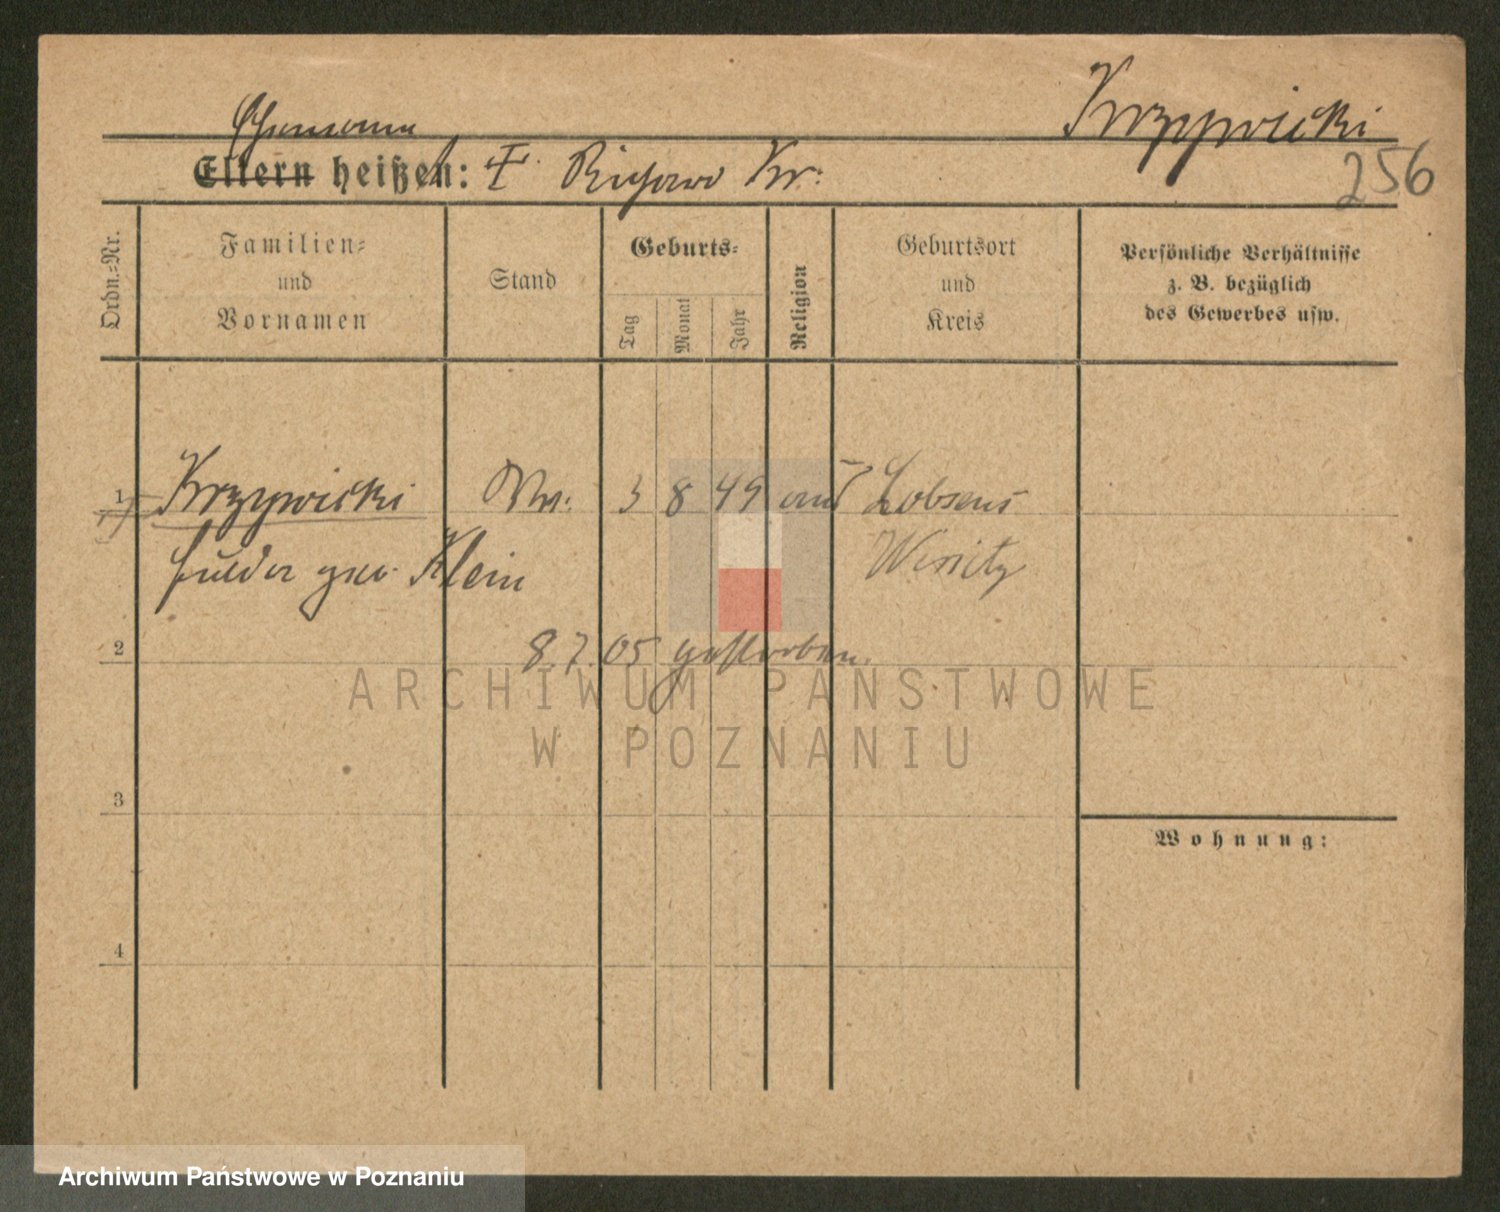 Krzywicki
Ehemann
Eltern heißen: † Richard Kr.
256
Ordn.-Nr.
Familien-
und
Vornamen
Stand
Geburts-
Tag
Monat
Jahr
Religion
Geburtsort
und
Kreis
Persönliche Verhältnisse
z. B. bezüglich
des Gewerbes usw.
1 Krzywicki Ww. 3 8 49 Lobsens
Hulda geb. Klein Wirsitz
2
8.7.05 gestorben.
ARCHIWUM PAŃSTWOWE
W POZNANIU
3
Wohnung:
4
Archiwum Państwowe w Poznaniu